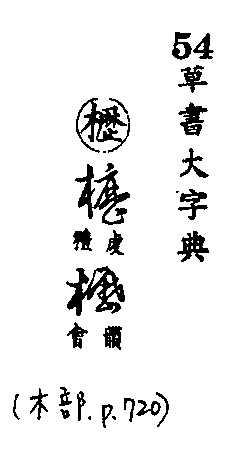 54
草書大字典
櫪
櫪
櫪
韻會
(木部.p.720)